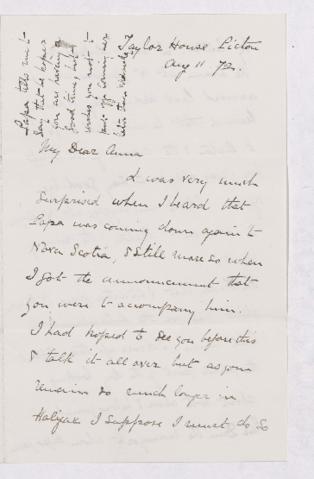 Taylor House. Picton
Aug 11 72.
My Dear Anna
I was very much
surprised when I heard that
Papa was coming down again to
Nova Scotia, & still more so when
I got the announcement that
you were to accompany him.
I had hoped to see you before this
& talk it all over but as you
remain so much longer in
Halifax I suppose I must do so
Papa tells me to
say that he hopes
you are having a
good time, and
wishes you not to
put off coming here
later than Wednesday